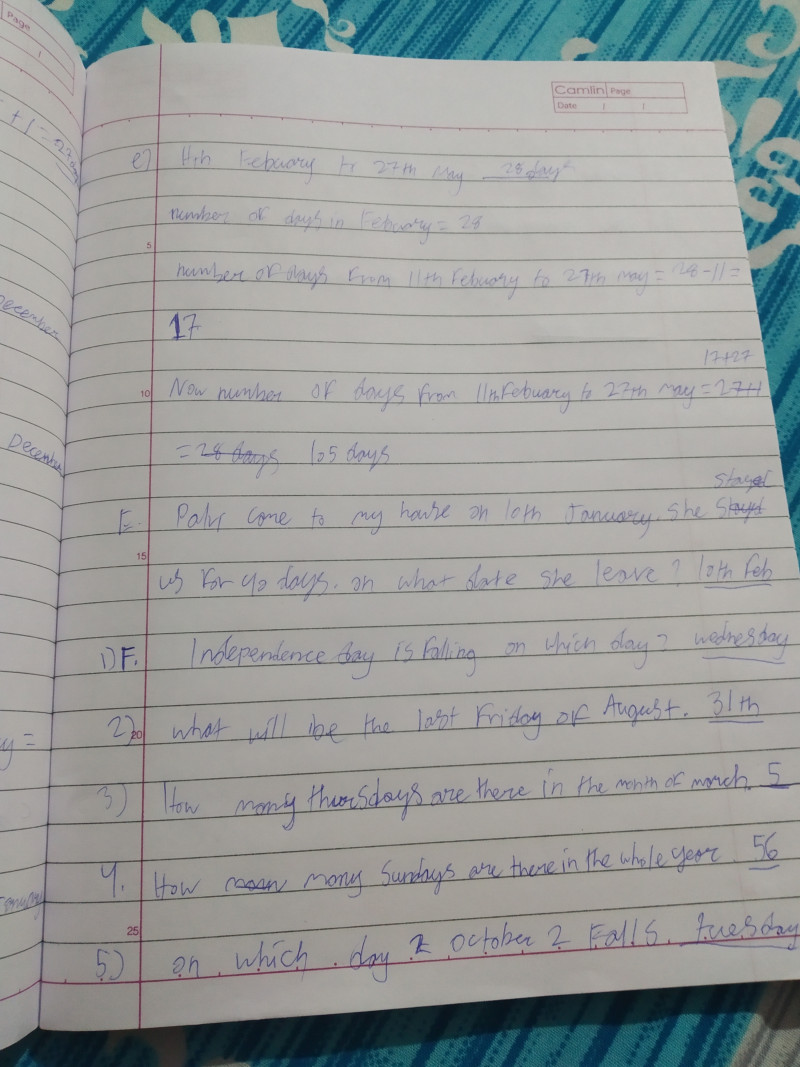 Page
Camlin Page
Date / /
+ 1 = 27 days
e) 11th Febuary to 27th may 28 days
number of days in Febuary = 28
5
number of days from 11th Febuary to 27th may = 28 - 11 =
December
17
17+27
10 Now number of days from 11th Febuary to 27th may = 27+1
= 28 days 105 days
December
stayed
E. come to my house on 10th January. She stayd
15
us for 40 days. on what date she leave? 10th Feb
1) F. Independence day is falling on which day? wednesday
2) 20 what will be the last Friday of August. 31th
y =
3) How many thursdays are there in the month of march. 5
4. How many Sundays are there in the whole year 56
25
5) on which day October 2 Falls. tuesday